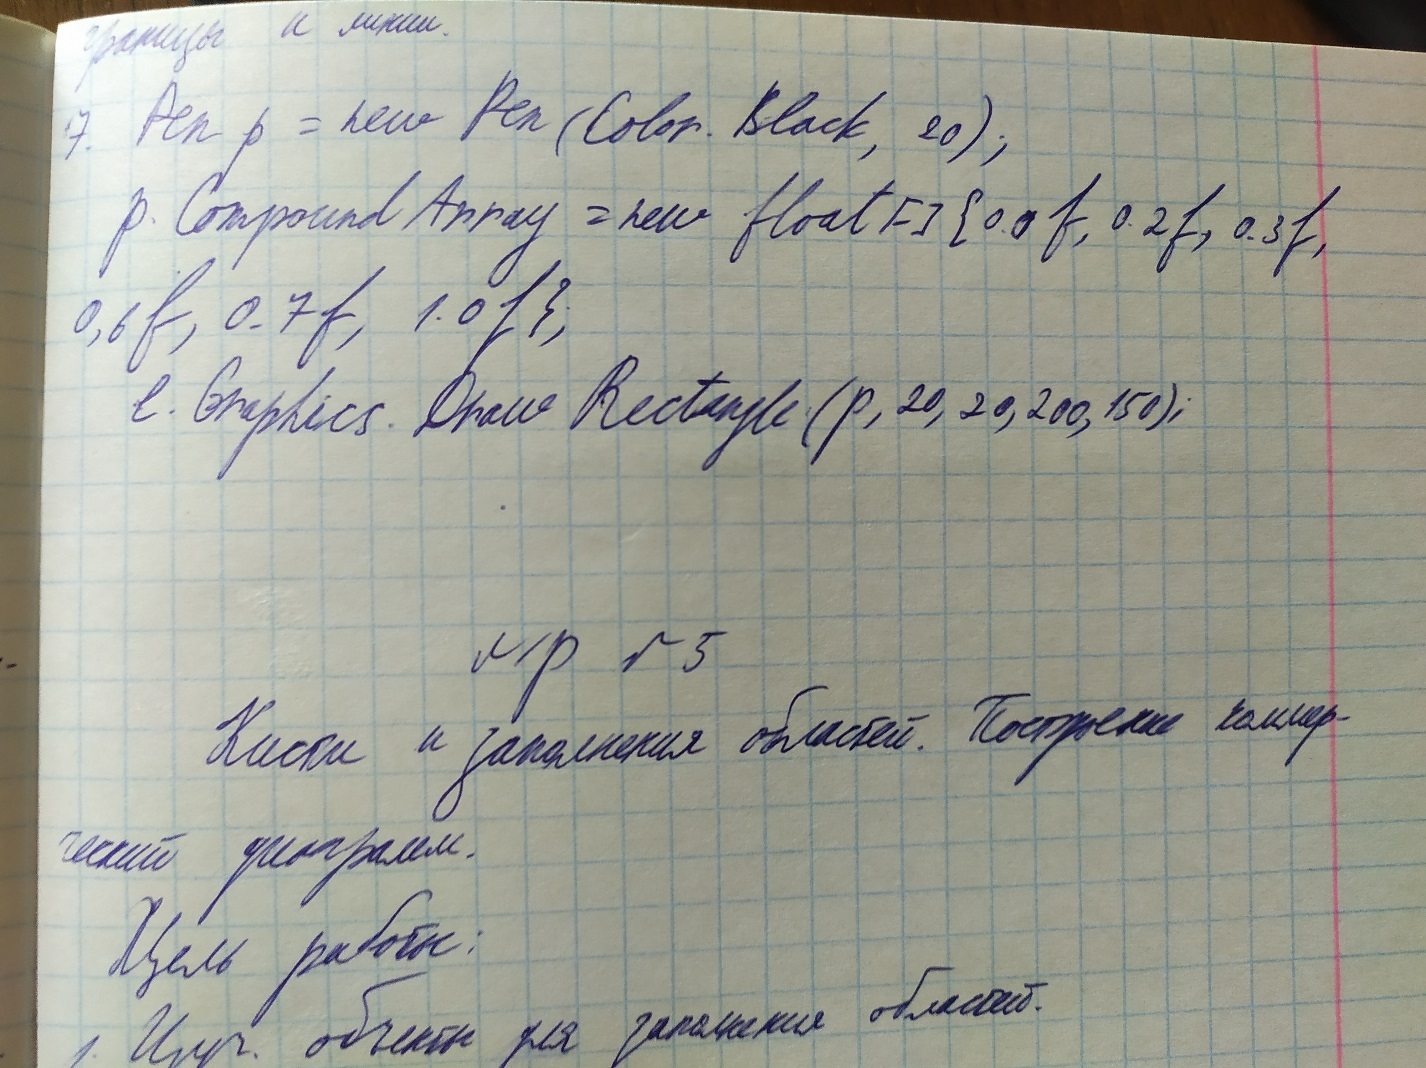 границы и линии.
17. Pen p = new Pen (Color. Black, 20);
p. Compound Array = new float [] {0.0f, 0.2f, 0.3f,
0,6f, 0.7f, 1.0f};
e. Graphics. Draw Rectangle (p, 20, 20, 200, 150);
пр № 5
Кисти и заполнения областей. Построение коммер-
ческий диаграмм.
Цель работы:
1. Изуч. объекты для заполнения областей.